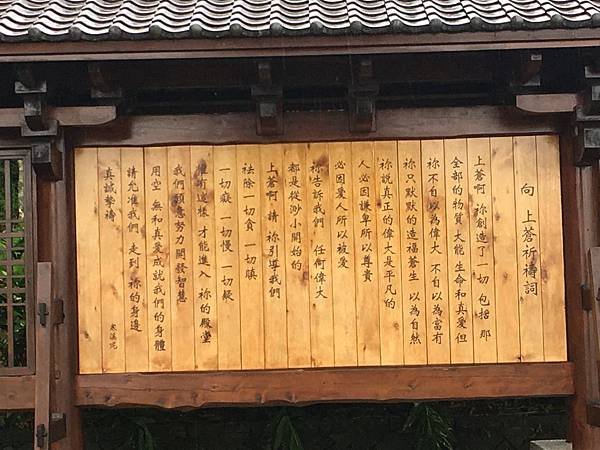 向 上蒼祈禱詞
上蒼啊 祢創造了一切 包括 那
全部的物質 大能 生命和真愛 但
祢不自以為偉大 不自以為富有
祢只默默的造福蒼生 以為自然
祢說真正的偉大是平凡的
人必因謙卑所以尊貴
必因愛人所以被愛
祢告訴我們 任何偉大
都是從渺小開始的
上蒼啊 請 祢引導我們
祛除一切貪 一切瞋
一切癡 一切慢 一切疑
唯有這樣 才能進入 祢的殿堂
我們願意努力開發智慧
用空 無和真愛成就我們的身體
請允准我們 走到 祢的身邊
真誠摯禱